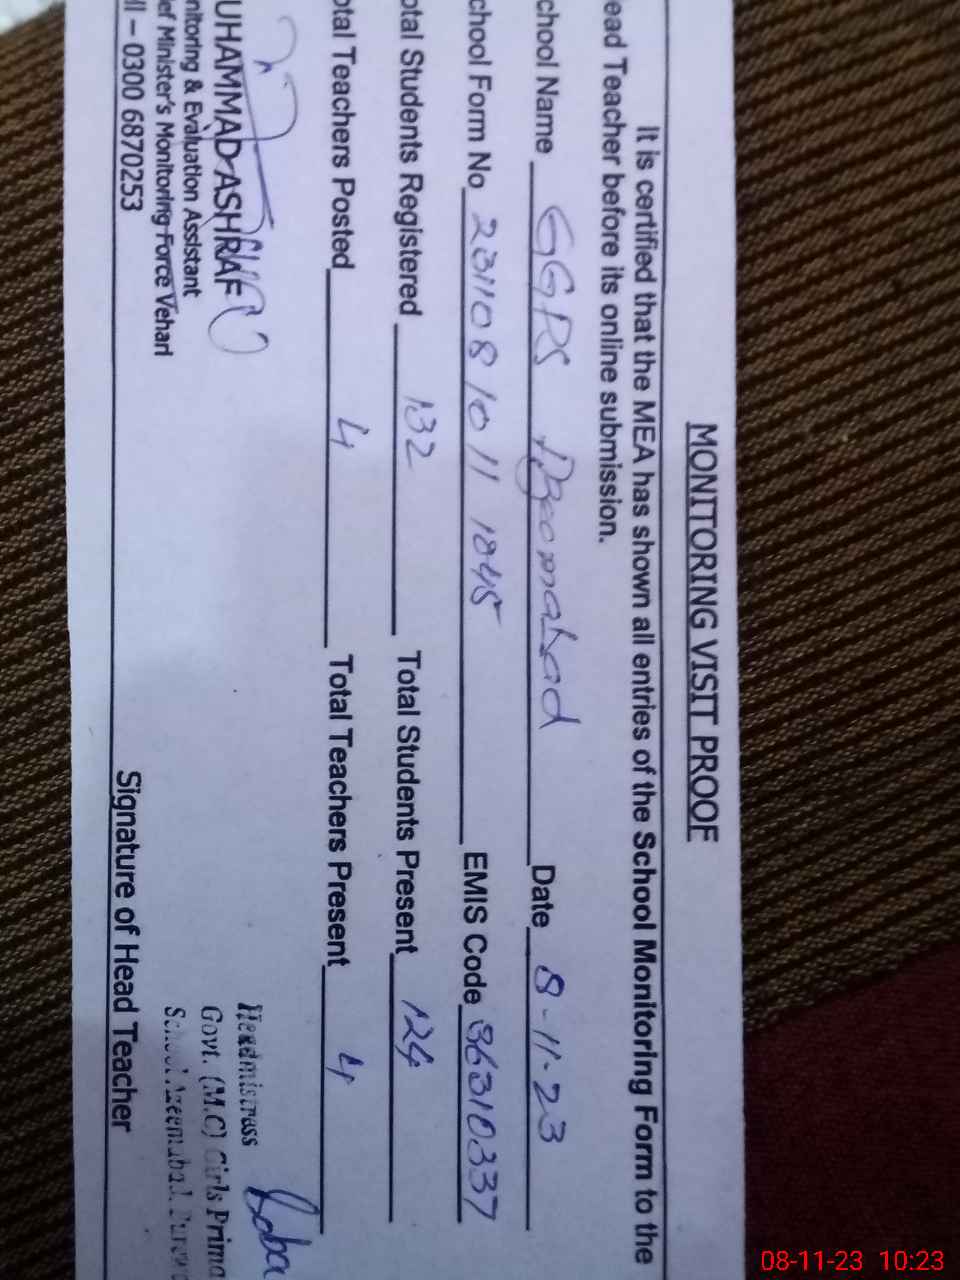 MONITORING VISIT PROOF
It is certified that the MEA has shown all entries of the School Monitoring Form to the
ead Teacher before its online submission.
chool Name GGPS Date 8-11-23
chool Form No 231108 1011 1045 EMIS Code 36310337
otal Students Registered 132 Total Students Present 124
otal Teachers Posted 4 Total Teachers Present 4
UHAMMAD ASHRAF
nitoring & Evaluation Assistant
ief Minister's Monitoring Force Vehari
ll – 0300 6870253
Headmistress
Govt. (M.C) Girls Prima
School
Signature of Head Teacher
08-11-23 10:23